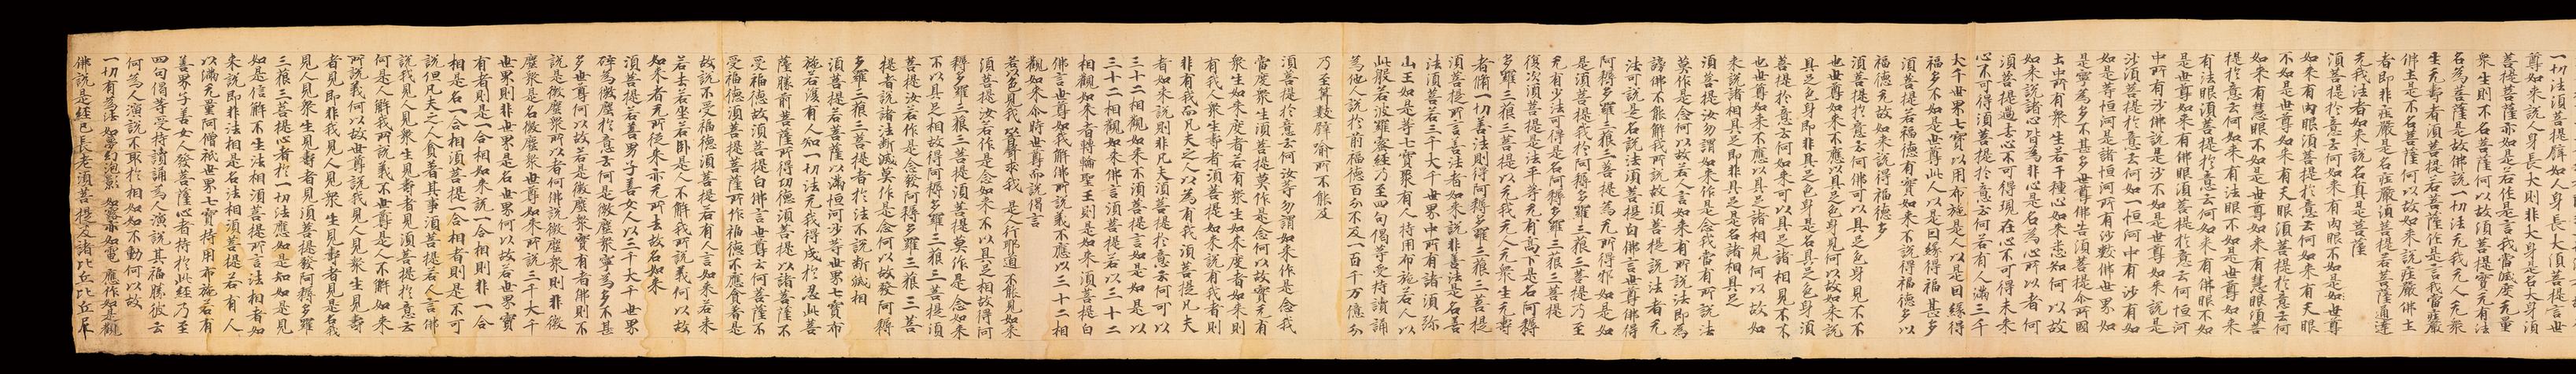 一切法須菩提譬如人身長大須菩提言世
尊如來說人身長大則非大身是名大身須
菩提菩薩亦如是若作是言我當滅度无量
衆生則不名菩薩何以故須菩提實无有法
名為菩薩是故佛說一切法无我无人无衆
生无壽者須菩提若菩薩作是言我當莊嚴
佛土是不名菩薩何以故如來說莊嚴佛土
者即非莊嚴是名莊嚴須菩提若菩薩通達
无我法者如來說名真是菩薩
須菩提於意云何如來有肉眼不如是世尊
如來有肉眼須菩提於意云何如來有天眼
不如是世尊如來有天眼須菩提於意云何
如來有慧眼不如是世尊如來有慧眼須菩
提於意云何如來有法眼不如是世尊如來
有法眼須菩提於意云何如來有佛眼不如
是世尊如來有佛眼須菩提於意云何恒河
中所有沙佛說是沙不如是世尊如來說是
沙須菩提於意云何如一恒河中有沙有如
如是等恒河是諸恒河所有沙數佛世界如
是寧為多不甚多世尊佛告須菩提尒所國
土中所有衆生若干種心如來悉知何以故
如來說諸心皆為非心是名為心所以者何
須菩提過去心不可得現在心不可得未來
心不可得須菩提於意云何若有人滿三千
大千世界七寶以用布施是人以是因緣得
福多不如是世尊此人以是因緣得福甚多
須菩提若福德有實如來不說得福德多以
福德无故如來說得福德多
須菩提於意云何佛可以具足色身見不不
也世尊如來不應以具足色身見何以故如來說
具足色身即非具足色身是名具足色身須
菩提於意云何如來可以具足諸相見不不
也世尊如來不應以具足諸相見何以故如
來說諸相具足即非具足是名諸相具足
須菩提汝勿謂如來作是念我當有所說法
莫作是念何以故若人言如來有所說法即為
謗佛不能解我所說故須菩提說法者无
法可說是名說法須菩提白佛言世尊佛得
阿耨多羅三藐三菩提為无所得耶如是如
是須菩提我於阿耨多羅三藐三菩提乃至
无有少法可得是名阿耨多羅三藐三菩提
復次須菩提是法平等无有高下是名阿耨
多羅三藐三菩提以无我无人无衆生无壽
者脩一切善法則得阿耨多羅三藐三菩提
須菩提所言善法者如來說非善法是名善
法須菩提若三千大千世界中所有諸須弥
山王如是等七寶聚有人持用布施若人以
此般若波羅蜜經乃至四句偈等受持讀誦
為他人說於前福德百分不及一百千万億分
乃至筭數譬喻所不能及
須菩提於意云何汝等勿謂如來作是念我
當度衆生須菩提莫作是念何以故實无有
衆生如來度者若有衆生如來度者如來則
有我人衆生壽者須菩提如來說有我者則
非有我而凡夫之人以為有我須菩提凡夫
者如來說則非凡夫須菩提於意云何可以
三十二相觀如來不須菩提言如是如是以
三十二相觀如來佛言須菩提若以三十二
相觀如來者轉輪聖王則是如來須菩提白
佛言世尊如我解佛所說義不應以三十二相
觀如來尒時世尊而說偈言
若以色見我以音聲求我是人行耶道不能見如來
須菩提汝若作是念如來不以具足相故得阿
耨多羅三藐三菩提須菩提莫作是念如來
不以具足相故得阿耨多羅三藐三菩提須
菩提汝若作是念發阿耨多羅三藐三菩
提者說諸法斷滅莫作是念何以故發阿耨
多羅三藐三菩提者於法不說斷滅相
須菩提若菩薩以滿恒河沙等世界七寶布
施若復有人知一切法无我得成於忍此菩
薩勝前菩薩所得功德須菩提以諸菩薩不
受福德故須菩提白佛言世尊云何菩薩不
受福德須菩提菩薩所作福德不應貪著是
故說不受福德須菩提若有人言如來若來
若去若坐若卧是人不解我所說義何以故
如來者无所從來亦无所去故名如來
須菩提若善男子善女人以三千大千世界
碎為微塵於意云何是微塵衆寧為多不甚
多世尊何以故若是微塵衆實有者佛則不
說是微塵衆所以者何佛說微塵衆則非微
塵衆是名微塵衆世尊如來所說三千大千
世界則非世界是名世界何以故若世界實
有者則是一合相如來說一合相則非一合
相是名一合相須菩提一合相者則是不可
說但凡夫之人貪著其事須菩提若人言佛
說我見人見衆生見壽者見須菩提於意云
何是人解我所說義不世尊是人不解如來
所說義何以故世尊說我見人見衆生見壽
者見即非我見人見衆生見壽者見是名我
見人見衆生見壽者見須菩提發阿耨多羅
三藐三菩提心者於一切法應如是知如是見
如是信解不生法相須菩提所言法相者如
來說即非法相是名法相須菩提若有人
以滿无量阿僧祇世界七寶持用布施若有
善男子善女人發菩薩心者持於此經乃至
四句偈等受持讀誦為人演說其福勝彼云
何為人演說不取於相如如不動何以故
一切有為法如夢幻泡影如露亦如電應作如是觀
佛說是經已長老須菩提及諸比丘比丘尼